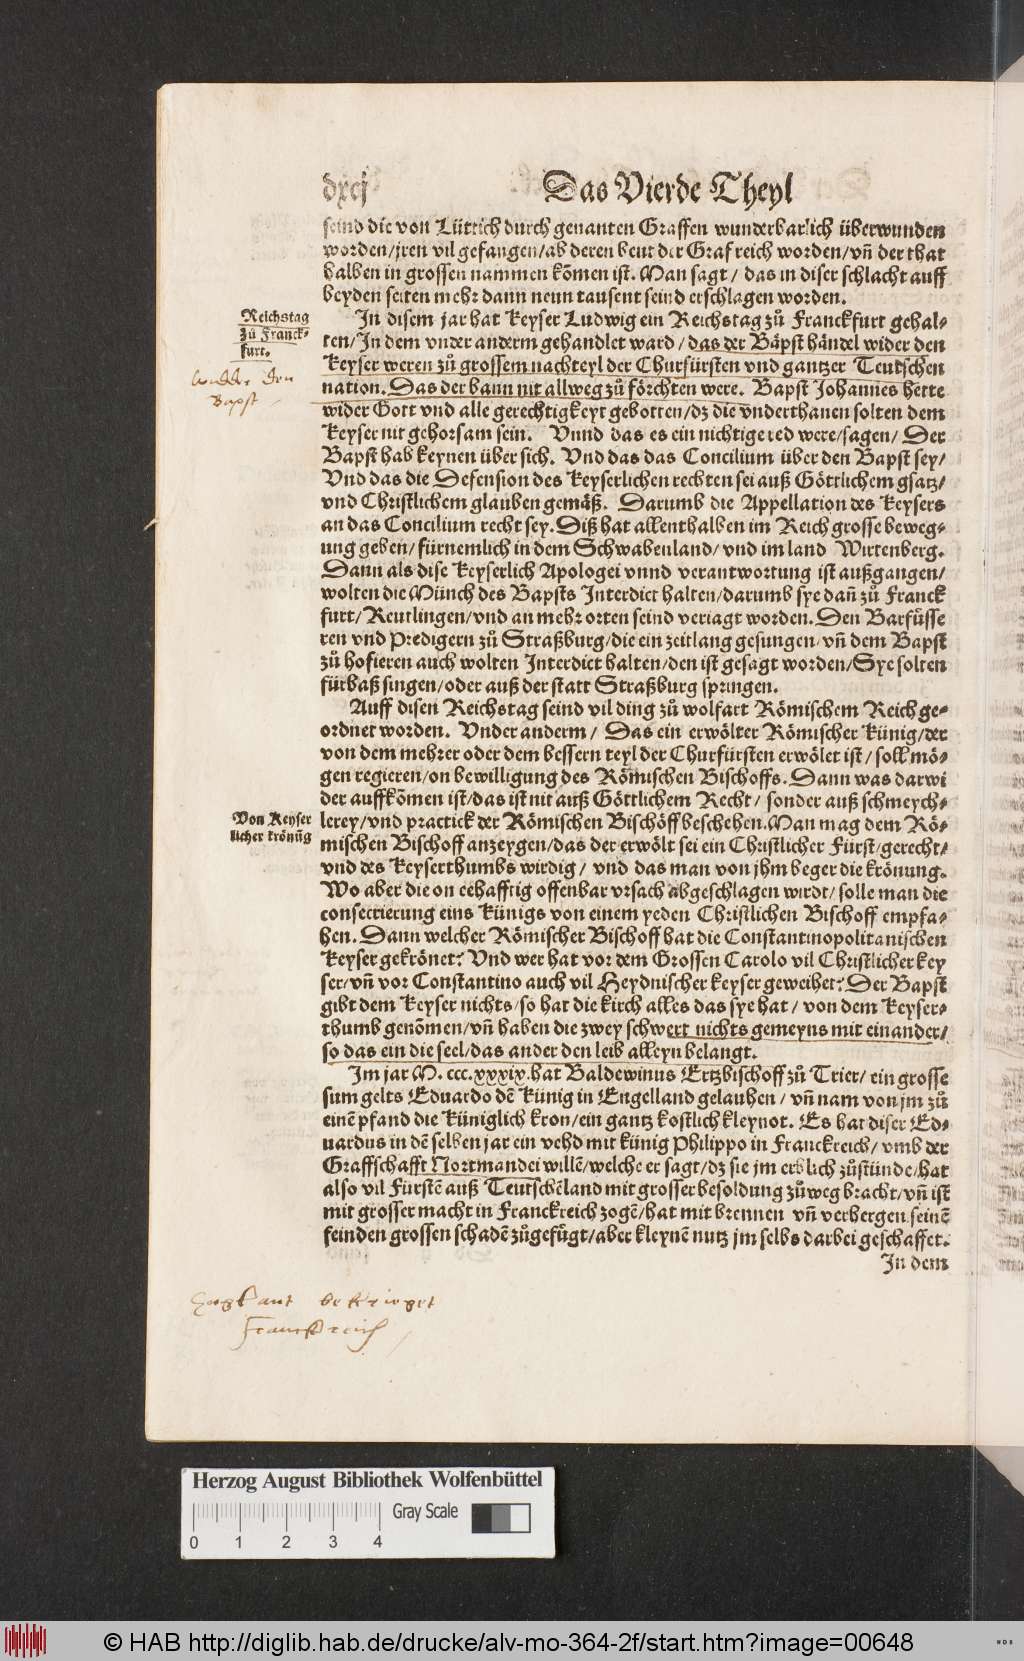 dxcj
Das Vierde Theyl
seind die von Lüttich durch genanten Graffen wunderbarlich überwunden
worden/jren vil gefangen/ab deren beut der Graf reich worden/vñ der that
halben in grossen nammen kõmen ist. Man sagt/ das in diser schlacht auff
beyden seiten mehr dann neun tausent seind erschlagen worden.
Reichstag
zů Franck-
furt.
wider den
Bapst
In disem jar hat Keyser Ludwig ein Reichstag zů Franckfurt gehal-
ten/In dem vnder anderm gehandlet ward/das der Bäpst händel wider den
Keyser weren zů grossem nachteyl der Churfürsten vnd gantzer Teutschen
nation. Das der bann nit allweg zů förchten were. Bapst Johannes hette
wider Gott vnd alle gerechtigkeyt gebotten/dz die vnderthanen solten dem
Keyser nit gehorsam sein. Vnnd das es ein nichtige red were/sagen/ Der
Bapst hab keynen über sich. Vnd das das Concilium über den Bapst sey/
Vnd das die Defension des Keyserlichen rechten sei auß Göttlichem gsatz/
vnd Christlichem glauben gemäß. Darumb die Appellation des Keysers
an das Concilium recht sey. Diß hat allenthalben im Reich grosse beweg-
ung geben/fürnemlich in dem Schwabenland/vnd im land Wirtenberg.
Dann als dise Keyserlich Apologei vnnd verantwortung ist außgangen/
wolten die Münch des Bapsts Interdict halten/darumb sye dañ zů Franck
furt/Reutlingen/vnd an mehr orten seind veriagt worden. Den Barfüsse
ren vnd Predigern zů Straßburg/die ein zeitlang gesungen/vñ dem Bapst
zů hofieren auch wolten Interdict halten/den ist gesagt worden/Sye solten
fürbaß singen/oder auß der statt Straßburg springen.
Auff disen Reichstag seind vil ding zů wolfart Römischem Reich ge-
ordnet worden. Vnder anderm/ Das ein erwölter Römischer Künig/der
von dem mehrer oder dem bessern teyl der Churfürsten erwölet ist/soll mö-
gen regieren/on bewilligung des Römischen Bischoffs. Dann was darwi
der auffkõmen ist/das ist nit auß Göttlichem Recht/ sonder auß schmeych-
Von Keyser
licher krönũg
lerey/vnd practick der Römischen Bischöff beschehen. Man mag dem Rö-
mischen Bischoff anzeygen/das der erwölt sei ein Christlicher Fürst/gerecht/
vnd des Keyserthumbs wirdig/ vnd das man von jhm beger die krönung.
Wo aber die on eehafftig offenbar vrsach abgeschlagen wirdt/ solle man die
consecrierung eins Künigs von einem yeden Christlichen Bischoff empfa-
hen. Dann welcher Römischer Bischoff hat die Constantinopolitanischen
Keyser gekrönet? Vnd wer hat vor dem Grossen Carolo vil Christlicher Key
ser/vñ vor Constantino auch vil Heydnischer Keyser geweihet? Der Bapst
gibt dem Keyser nichts/so hat die kirch alles das sye hat/ von dem Keyser-
thumb genõmen/vñ haben die zwey schwert nichts gemeyns mit einander/
so das ein die seel/das ander den leib alleyn belangt.
Im jar M. ccc.xxxix. hat Baldewinus Ertzbischoff zů Trier/ein grosse
sum gelts Eduardo dẽ Künig in Engelland gelauhen/ vñ nam von jm zů
einẽ pfand die Küniglich kron/ein gantz kostlich kleynot. Es hat diser Ed-
uardus in dẽ selben jar ein vehd mit Künig Philippo in Franckreich/ vmb der
Graffschafft Nortmandei willẽ/welche er sagt/dz sie jm erblich zůstünde/hat
also vil Fürstẽ auß Teutschẽland mit grosser besoldung zůweg bracht/vñ ist
mit grosser macht in Franckreich zogẽ/hat mit brennen vñ verhergen seinẽ
feinden grossen schadẽ zůgefügt/aber kleynẽ nutz jm selbs darbei geschaffet.
In dem
bekrieget
Franckreich
Herzog August Bibliothek Wolfenbüttel
Gray Scale
0 1 2 3 4
© HAB http://diglib.hab.de/drucke/alv-mo-364-2f/start.htm?image=00648